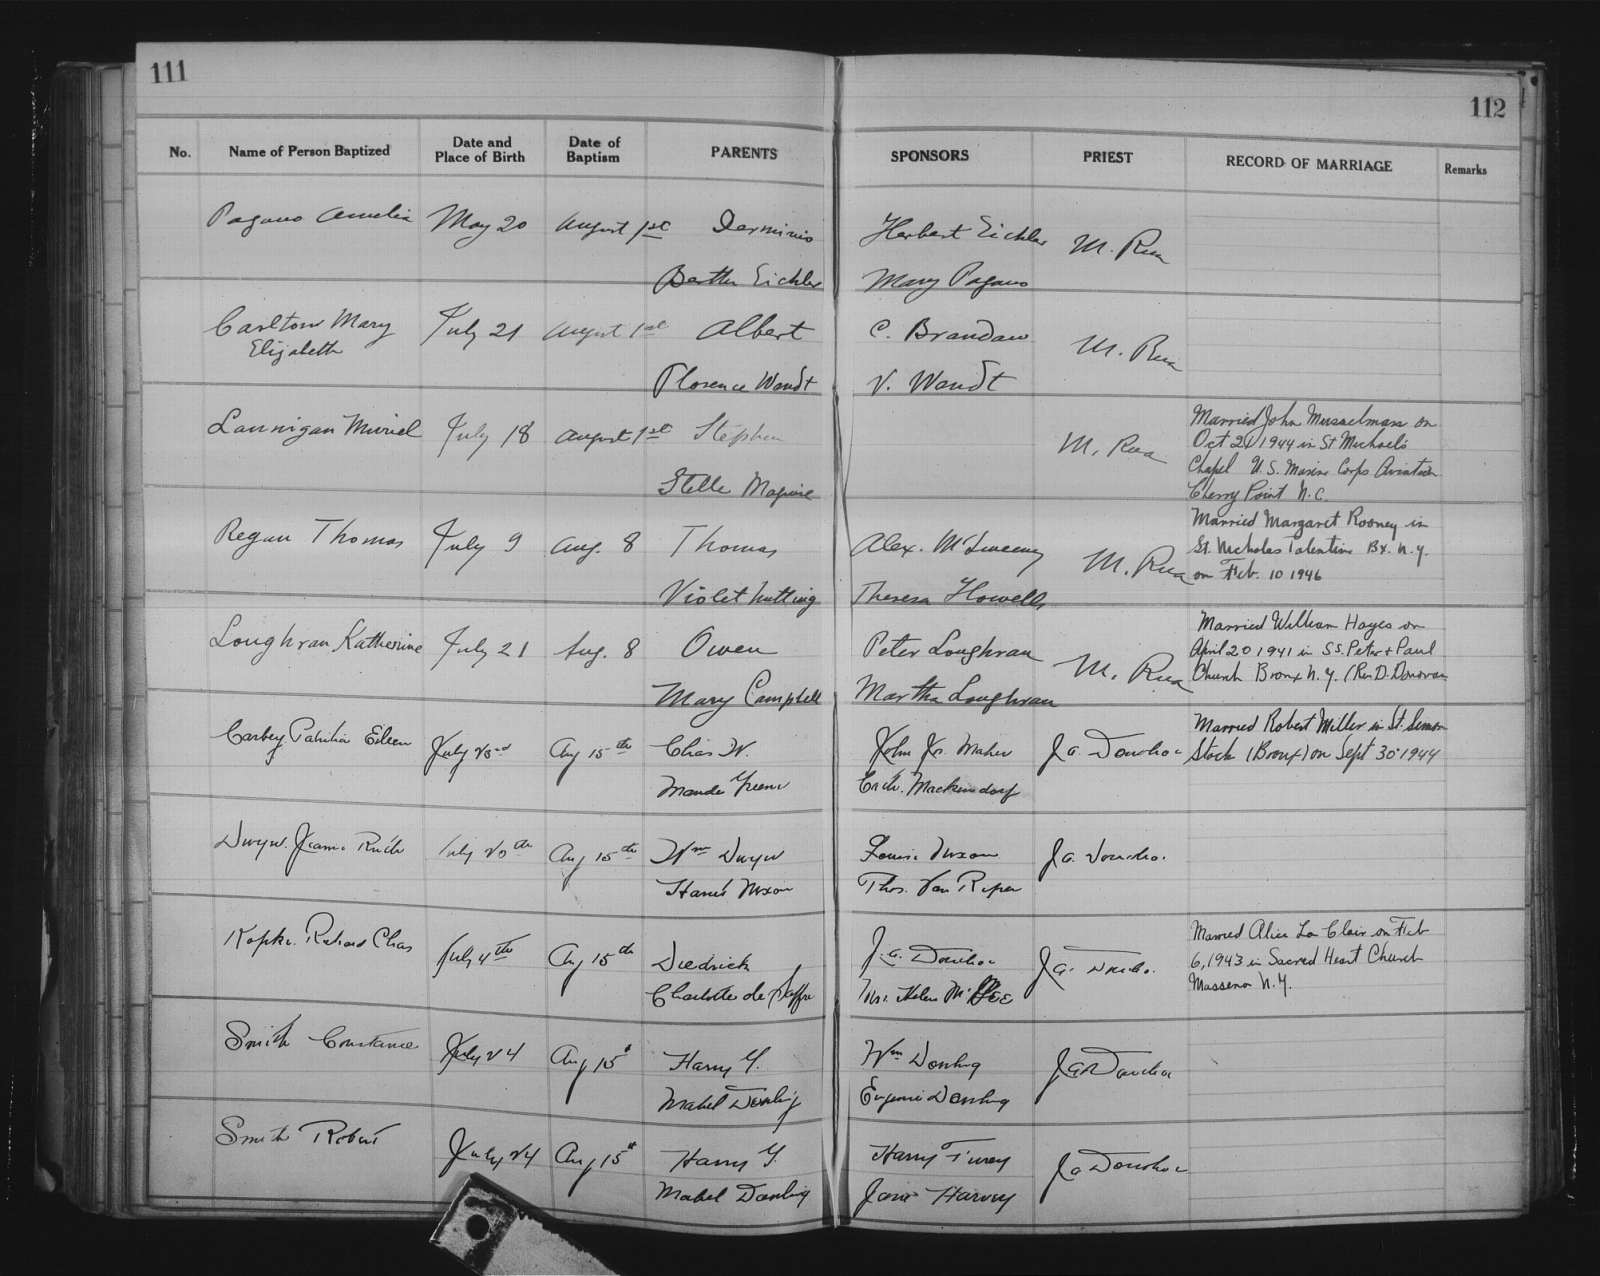 111
112
No.
Name of Person Baptized
Date and Place of Birth
Date of Baptism
PARENTS
SPONSORS
PRIEST
RECORD OF MARRIAGE
Remarks
Pagano Amelia May 20 August 1st Herbert Eichler M. Rua
Bertha Eichler Mary Pagano
Carlton Mary July 21 August 1st Albert C. Brandau M. Rua
Elizabeth
Florence Wandt V. Wandt
Lannigan Muriel July 18 August 1st Stephen M. Rua
Stella Maguire
Married John Musselman on
Oct 21 1944 in St Michael's
Chapel U.S. Marine Corps Aviation
Cherry Point N.C.
Regan Thomas July 9 Aug. 8 Thomas Alex. McSweeney M. Rua
Violet Nutting Theresa Howells
Married Margaret Rooney in
St. Nicholas Tolentine Bx. N.Y.
on Feb. 10 1946
Loughran Katherine July 21 Aug. 8 Owen Peter Loughran M. Rua
Mary Campbell Martha Loughran
Married William Hayes on
April 20 1941 in SS. Peter + Paul
Church Bronx N.Y. (Rev D. Donovan
Carbey Patricia Eileen July Aug 15th Chas W. John Jr. Maher J.A. Donohoe
Maude Greene
Married Robert Miller in St. Simon
Stock (Bronx) on Sept 30 1944
Dwyer Jeanne Ruth July 20th Aug 15th Wm Dwyer Louise Nixon J.A. Donohoe
Nixon Thos. Van Riper
Richard Chas July 4th Aug 15th Diedrich J.A. Donohoe J.A. Donohoe
Charlotte de Mrs. Helen
Married Alice La Clair on Feb
6, 1943 in Sacred Heart Church
Massena N.Y.
Smith Constance July 24 Aug 15 Harry Y. Wm Dowling J.A. Donohoe
Mabel Dowling Eugenie Dowling
Smith Robert July 24 Aug 15 Harry Y. Harry Furey J.A. Donohoe
Mabel Dowling Jane Harvey